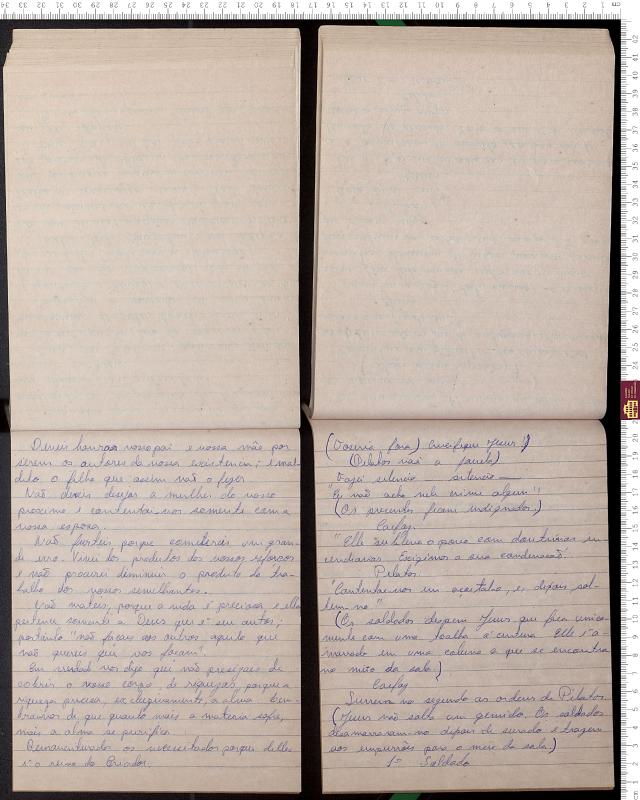 Deveis honrar vosso pai e vossa mãe por
serem os autores da vossa existencia; e mal-
dito o filho que assim não o fizer
Não deveis desejar a mulher do vosso
proximo e contentai-vos somente com a
vossa esposa.
Não furteis porque cometereis um gran-
de erro. Vivei dos produtos dos vossos esforços
e não procureis deminuir o produto do tra-
balho dos vossos semelhantes.
Não mateis, porque a vida é preciosa e ella
pertence somente a Deus que é seu autor;
portanto "não façais aos outros aquilo que
não quereis que vos façam".
Em verdade vos digo que não precizais de
cobrir o vosso corpo de riquezas, porque a
riqueza precisa, é a alma Lem-
braivos de que quanto mais a materia sofre,
mais a alma se purifica.
Bemaventurados os necessitados porque delles
é o reino do Criador.
(Vozeria fora) Crucifique Jesus!)
(Pilatos vai a janela)
"Fazei silencio silencio
"Eu não acho nele crime algum"
(Os presentes ficam indignados.)
Caifaz.
"Elle subleva o povo com doutrinas in-
cendiarias. Exigimos a sua condenação!
Pilatos
"Contentai-vos em açoital-o, e depois sol-
tem-no"
(Os soldados despem Jesus que fica unica-
mente com uma toalha á cintura Elle é a-
marrado em uma coluna a que se encontra
no meio da sala)
Caifaz
Surrem-no segundo as ordens de Pilatos.
(Jesus não solta um gemido. Os soldados
desamarram-no depois de surado e trazem
aos empurrões para o meio da sala)
1º Soldado